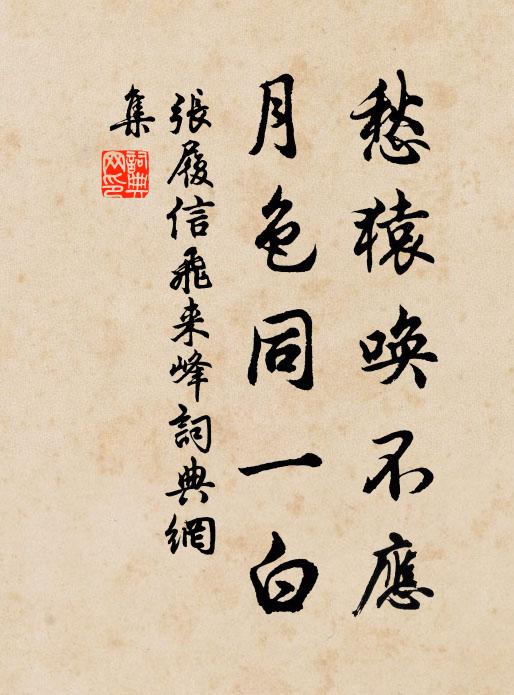 愁猿唤不應
月色同一白
張履信飛来峰詞典網
集
詞典
网印